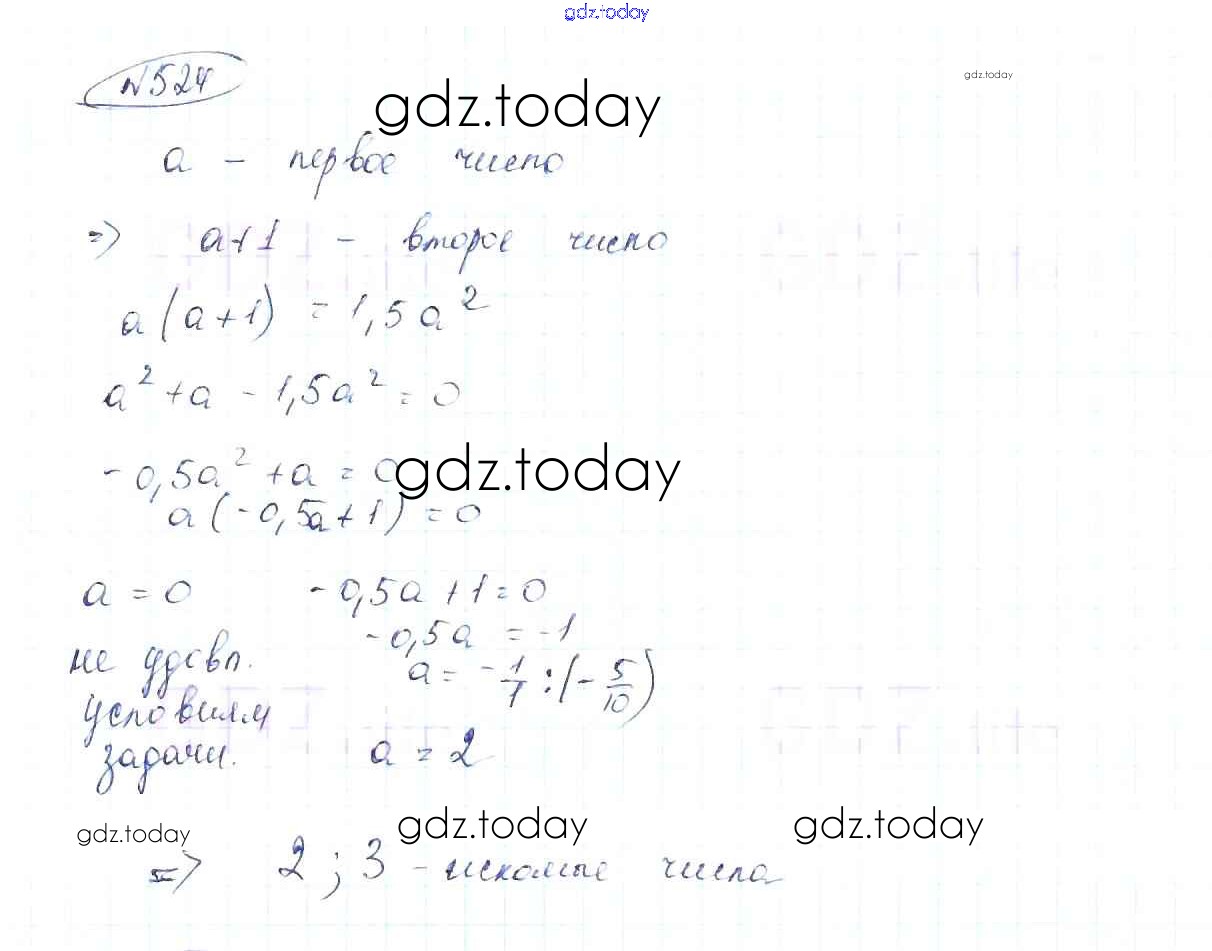 gdz.today
№524
gdz.today
gdz.today
a - первое число
=> a+1 - второе число
a(a+1) = 1,5a²
a² + a - 1,5a² = 0
-0,5a² + a = 0
gdz.today
a(-0,5a+1) = 0
a = 0 -0,5a + 1 = 0
-0,5a = -1
не удовл. a = -1/1 : (-5/10)
условиям
задачи. a = 2
gdz.today gdz.today gdz.today
=> 2; 3 - искомые числа